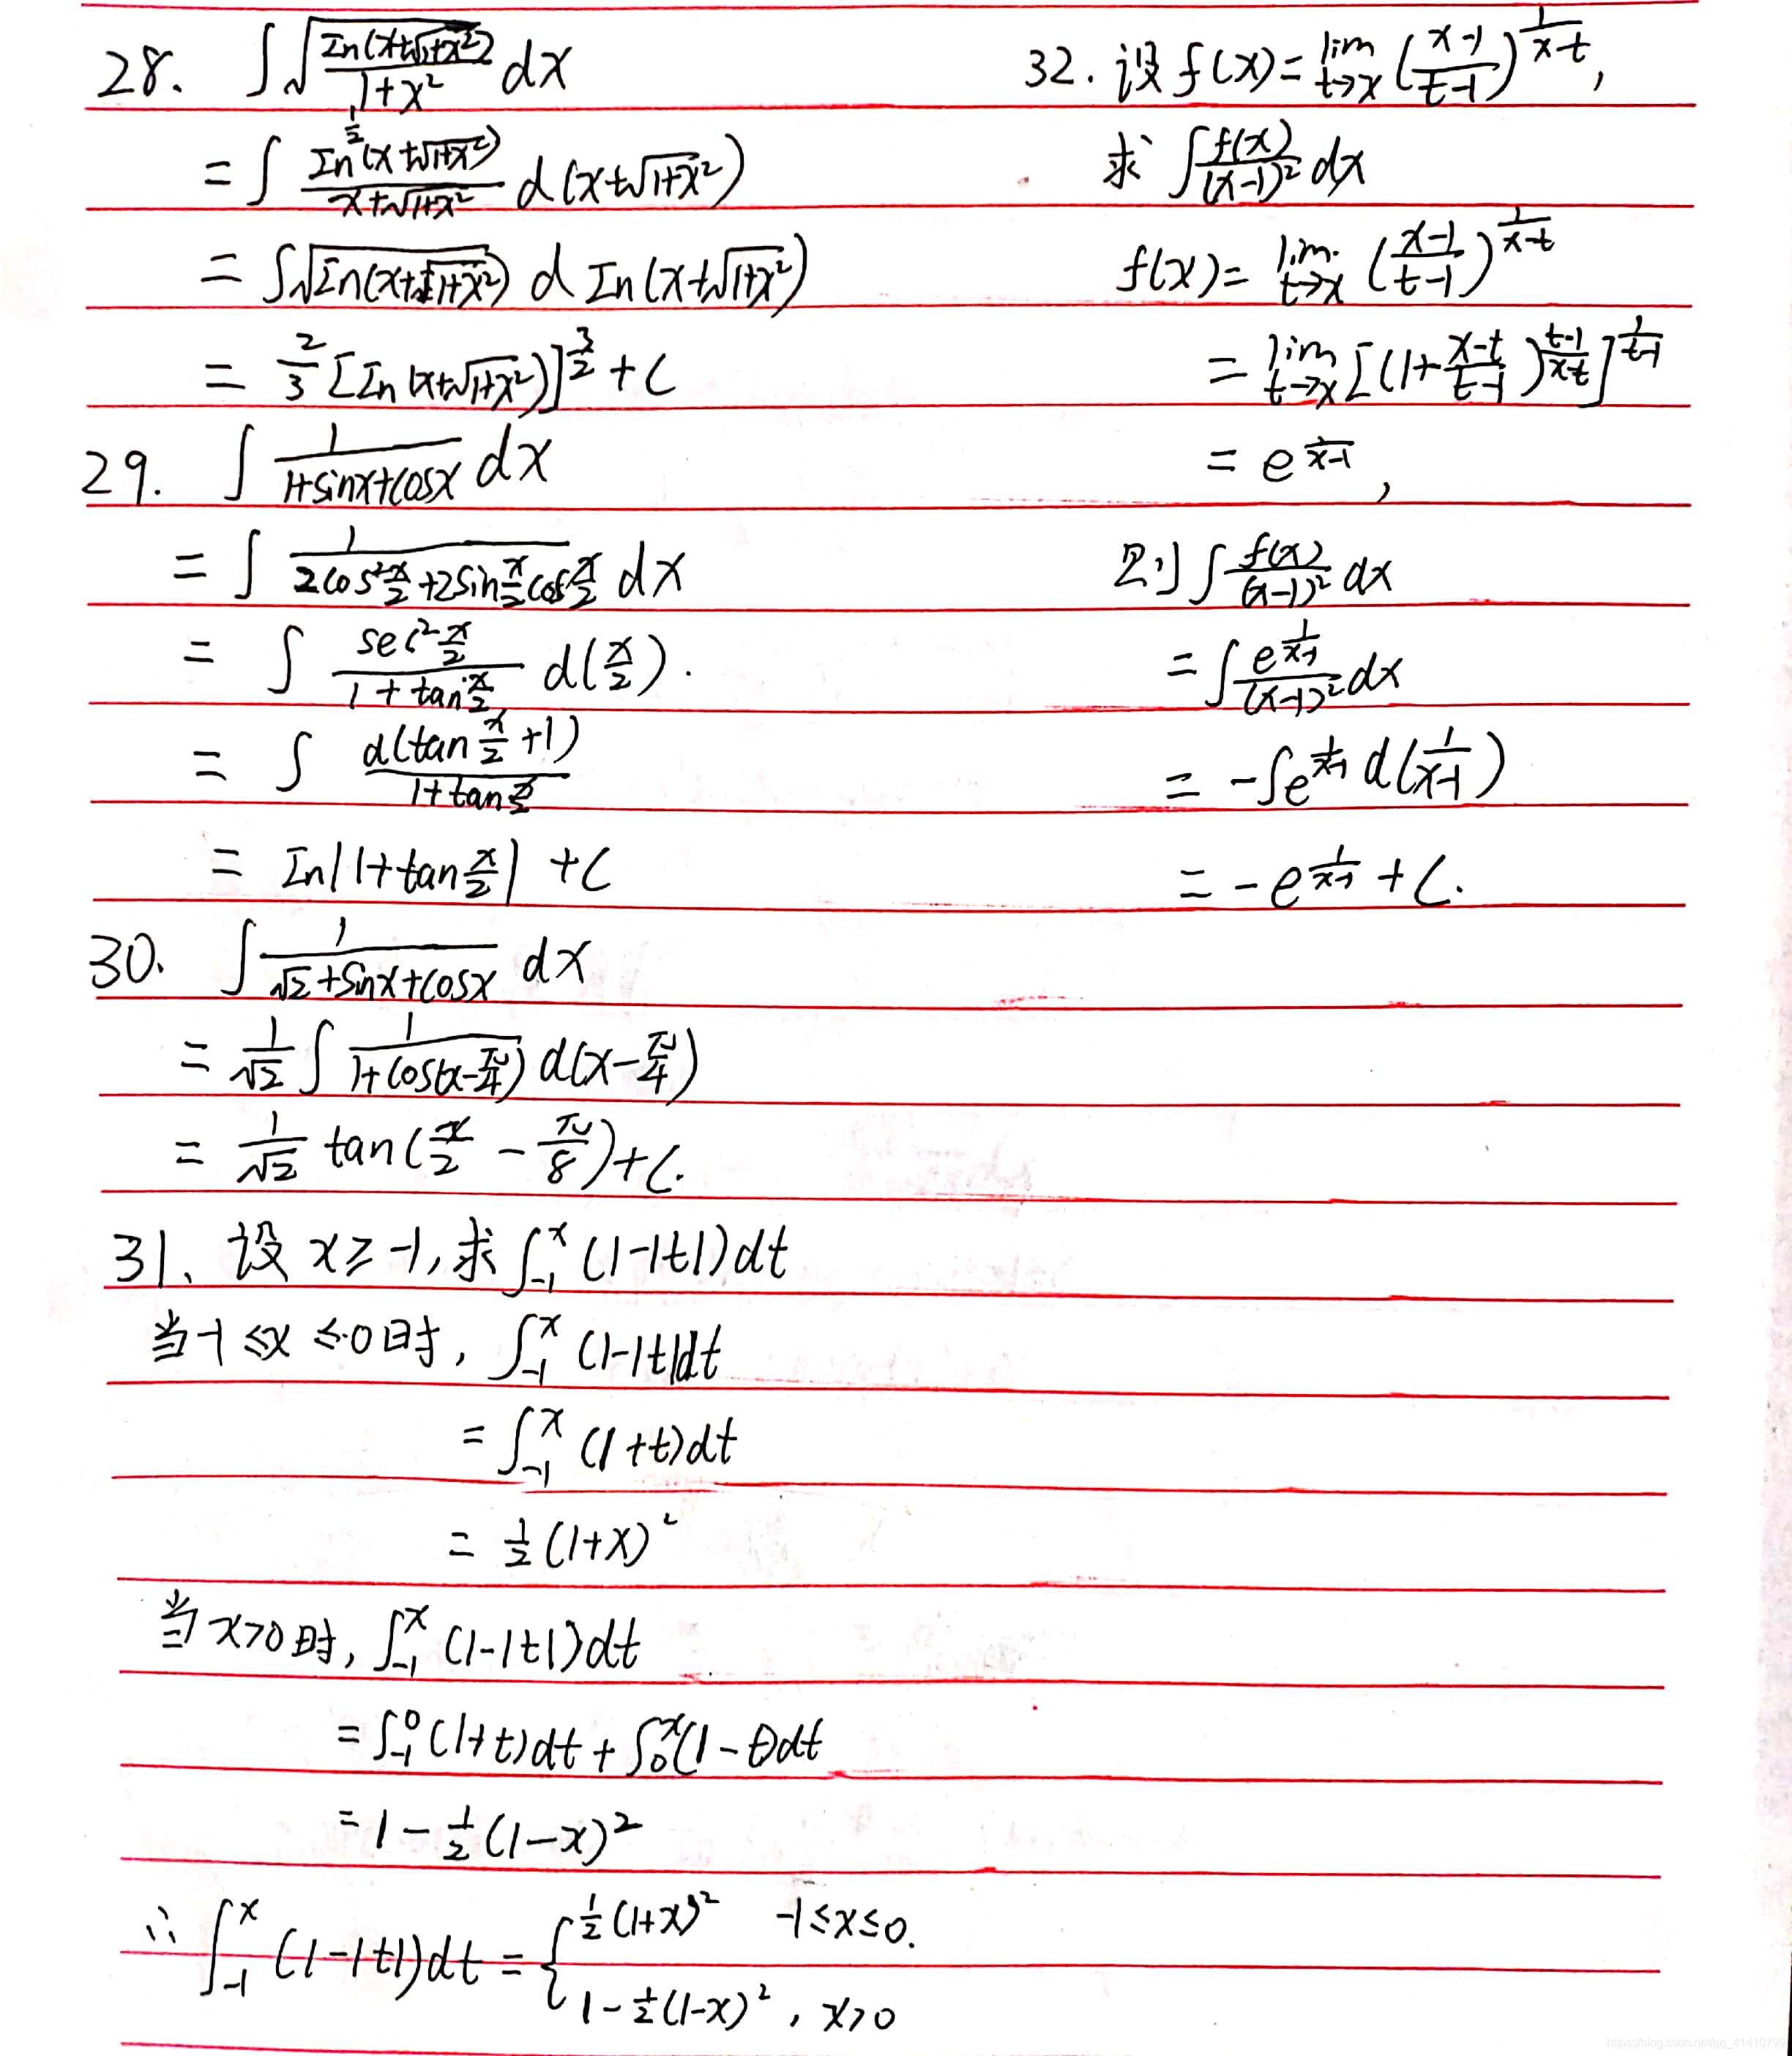 28. ∫√(ln(x+√(1+x²))/(1+x²)) dx
= ∫ ln^(1/2)(x+√(1+x²))/(x+√(1+x²)) d(x+√(1+x²))
= ∫√(ln(x+√(1+x²))) d ln(x+√(1+x²))
= 2/3 [ln(x+√(1+x²))]^(3/2) + C
29. ∫ 1/(1+sinx+cosx) dx
= ∫ 1/(2cos²(x/2)+2sin(x/2)cos(x/2)) dx
= ∫ sec²(x/2)/(1+tan(x/2)) d(x/2).
= ∫ d(tan(x/2)+1)/(1+tan(x/2))
= ln|1+tan(x/2)| + C
30. ∫ 1/(√2+sinx+cosx) dx
= 1/√2 ∫ 1/(1+cos(x-π/4)) d(x-π/4)
= 1/√2 tan(x/2 - π/8)+C.
31、设 x≥-1,求∫_{-1}^{x} (1-|t|)dt
当-1≤x≤0时, ∫_{-1}^{x} (1-|t|)dt
= ∫_{-1}^{x} (1+t)dt
= 1/2(1+x)²
当x>0时, ∫_{-1}^{x} (1-|t|)dt
= ∫_{-1}^{0}(1+t)dt + ∫_{0}^{x}(1-t)dt
= 1 - 1/2(1-x)²
∴ ∫_{-1}^{x} (1-|t|)dt = { 1/2(1+x)² -1≤x≤0.
1 - 1/2(1-x)², x>0
32. 设 f(x)= lim_{t→x} ((x-1)/(t-1))^(1/(x-t)),
求 ∫ f(x)/(x-1)² dx
f(x)= lim_{t→x} ((x-1)/(t-1))^(1/(x-t))
= lim_{t→x} [(1+(x-t)/(t-1))^((t-1)/(x-t))]^(1/(t-1))
= e^(1/(x-1)),
则 ∫ f(x)/(x-1)² dx
= ∫ e^(1/(x-1))/(x-1)² dx
= -∫e^(1/(x-1)) d(1/(x-1))
= -e^(1/(x-1)) + C.